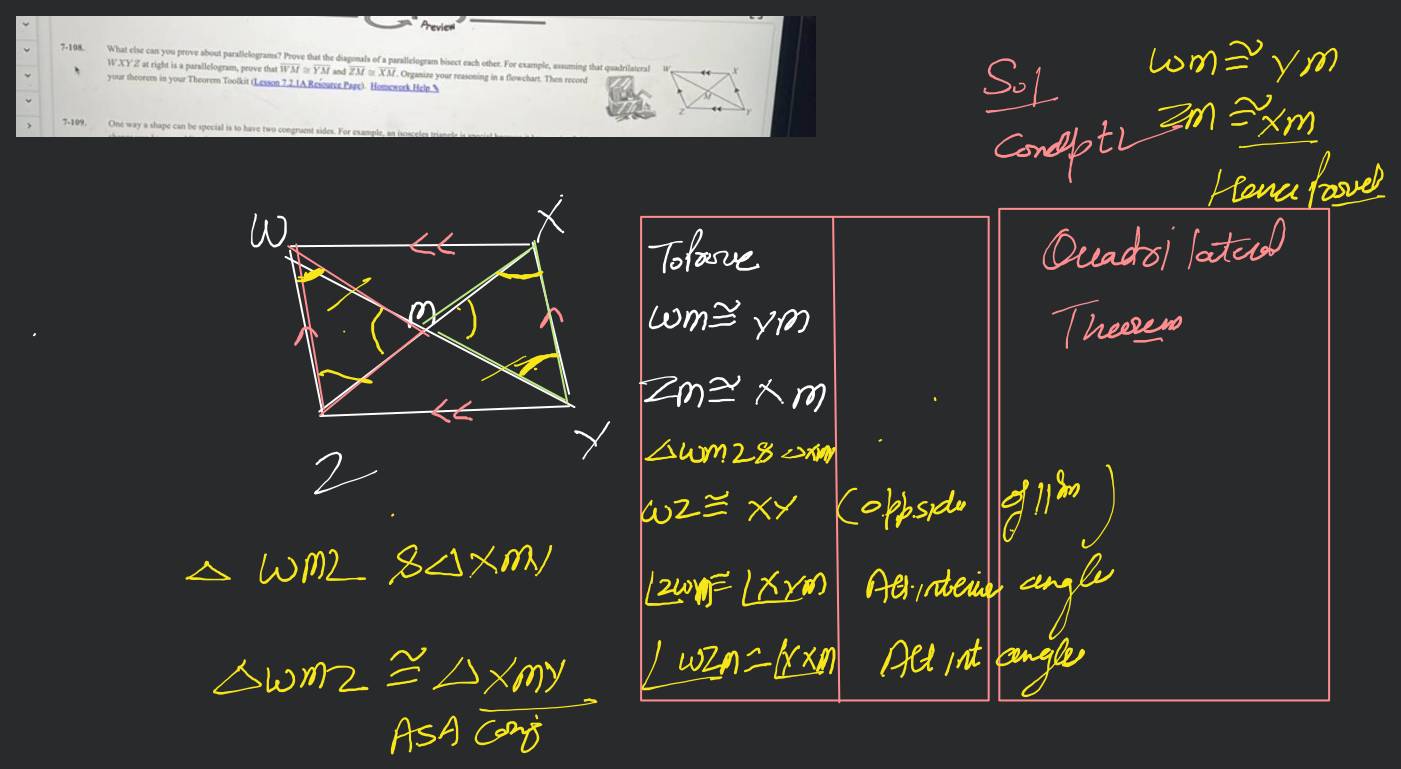 Preview
7-108. What else can you prove about parallelograms? Prove that the diagonals of a parallelogram bisect each other. For example, assuming that quadrilateral
WXYZ at right is a parallelogram, prove that WM ≅ YM and ZM ≅ XM. Organize your reasoning in a flowchart. Then record
your theorem in your Theorem Toolkit (Lesson 7.2.1A Resource Page). Homework Help
W X
M
Z Y
7-109. One way a shape can be special is to have two congruent sides. For example, an isosceles triangle is special
Sol
wm ≅ ym
zm ≅ xm
W X
m
Z Y
Quadrilateral
Theorem
wm ≅ ym
Zm ≅ xm
wz ≅ xy (opp side of ||gm)
∠zwm ≅ ∠xym Alt. interior angle
∠wzm = ∠yxm Alt int angle
△ wmz & △ xmy
△wmz ≅ △xmy
ASA Cong